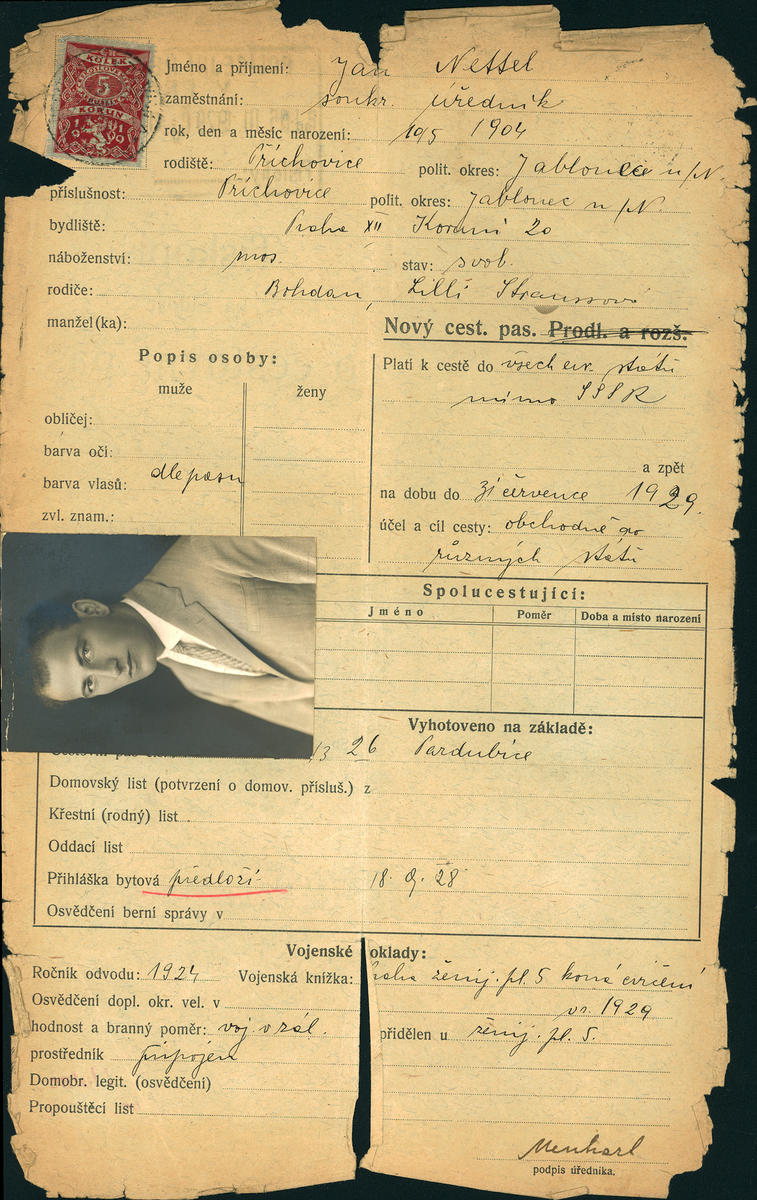 KOLEK
5
KORUN
1919
Jméno a příjmení: Jan Nettel
zaměstnání: soukr. úředník
rok, den a měsíc narození: 10/5 1904
rodiště: Příchovice polit. okres: Jablonec n/N.
příslušnost: Příchovice polit. okres: Jablonec n/N.
bydliště: Praha XII Korunní 20
náboženství: mos. stav: svob.
rodiče: Bohdan, Lilli Straussová
manžel(ka):
Nový cest. pas. Prodl. a rozš.
Popis osoby:
muže ženy
obličej:
barva očí:
barva vlasů: dle pasu
zvl. znam.:
Platí k cestě do všech evr. států
mimo SSSR
a zpět
na dobu do 31 července 1929.
účel a cíl cesty: obchodně do
různých států
Spolucestující:
Jméno Poměr Doba a místo narození
Vyhotoveno na základě:
26 Pardubice
Domovský list (potvrzení o domov. přísluš.) z
Křestní (rodný) list
Oddací list
Přihláška bytová předloží 18. 9. 28
Osvědčení berní správy v
Vojenské doklady:
Ročník odvodu: 1924 Vojenská knížka: Praha ženij. pl. 5 koná cvičení
Osvědčení dopl. okr. vel. v v r. 1929
hodnost a branný poměr: voj. v zál. přidělen u ženij. pl. 5.
prostředník připojen
Domobr. legit. (osvědčení)
Propouštěcí list
podpis úředníka.